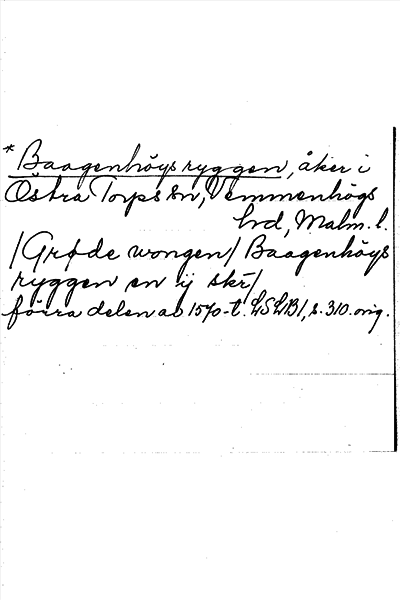 * Baagenhöysryggen, åker i
Östra Torps sn, Vemmenhögs
hd, Malm. l.
/Grøde wongen/ Baagenhöys
ryggen en ij skr/
förra delen av 1570-t. LSLB1, s. 310. orig.